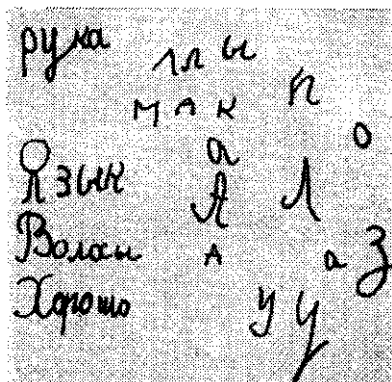 рука
лл ы
М А К п
о
а
Язык А Л
Волосы А а З
Хорошо у у